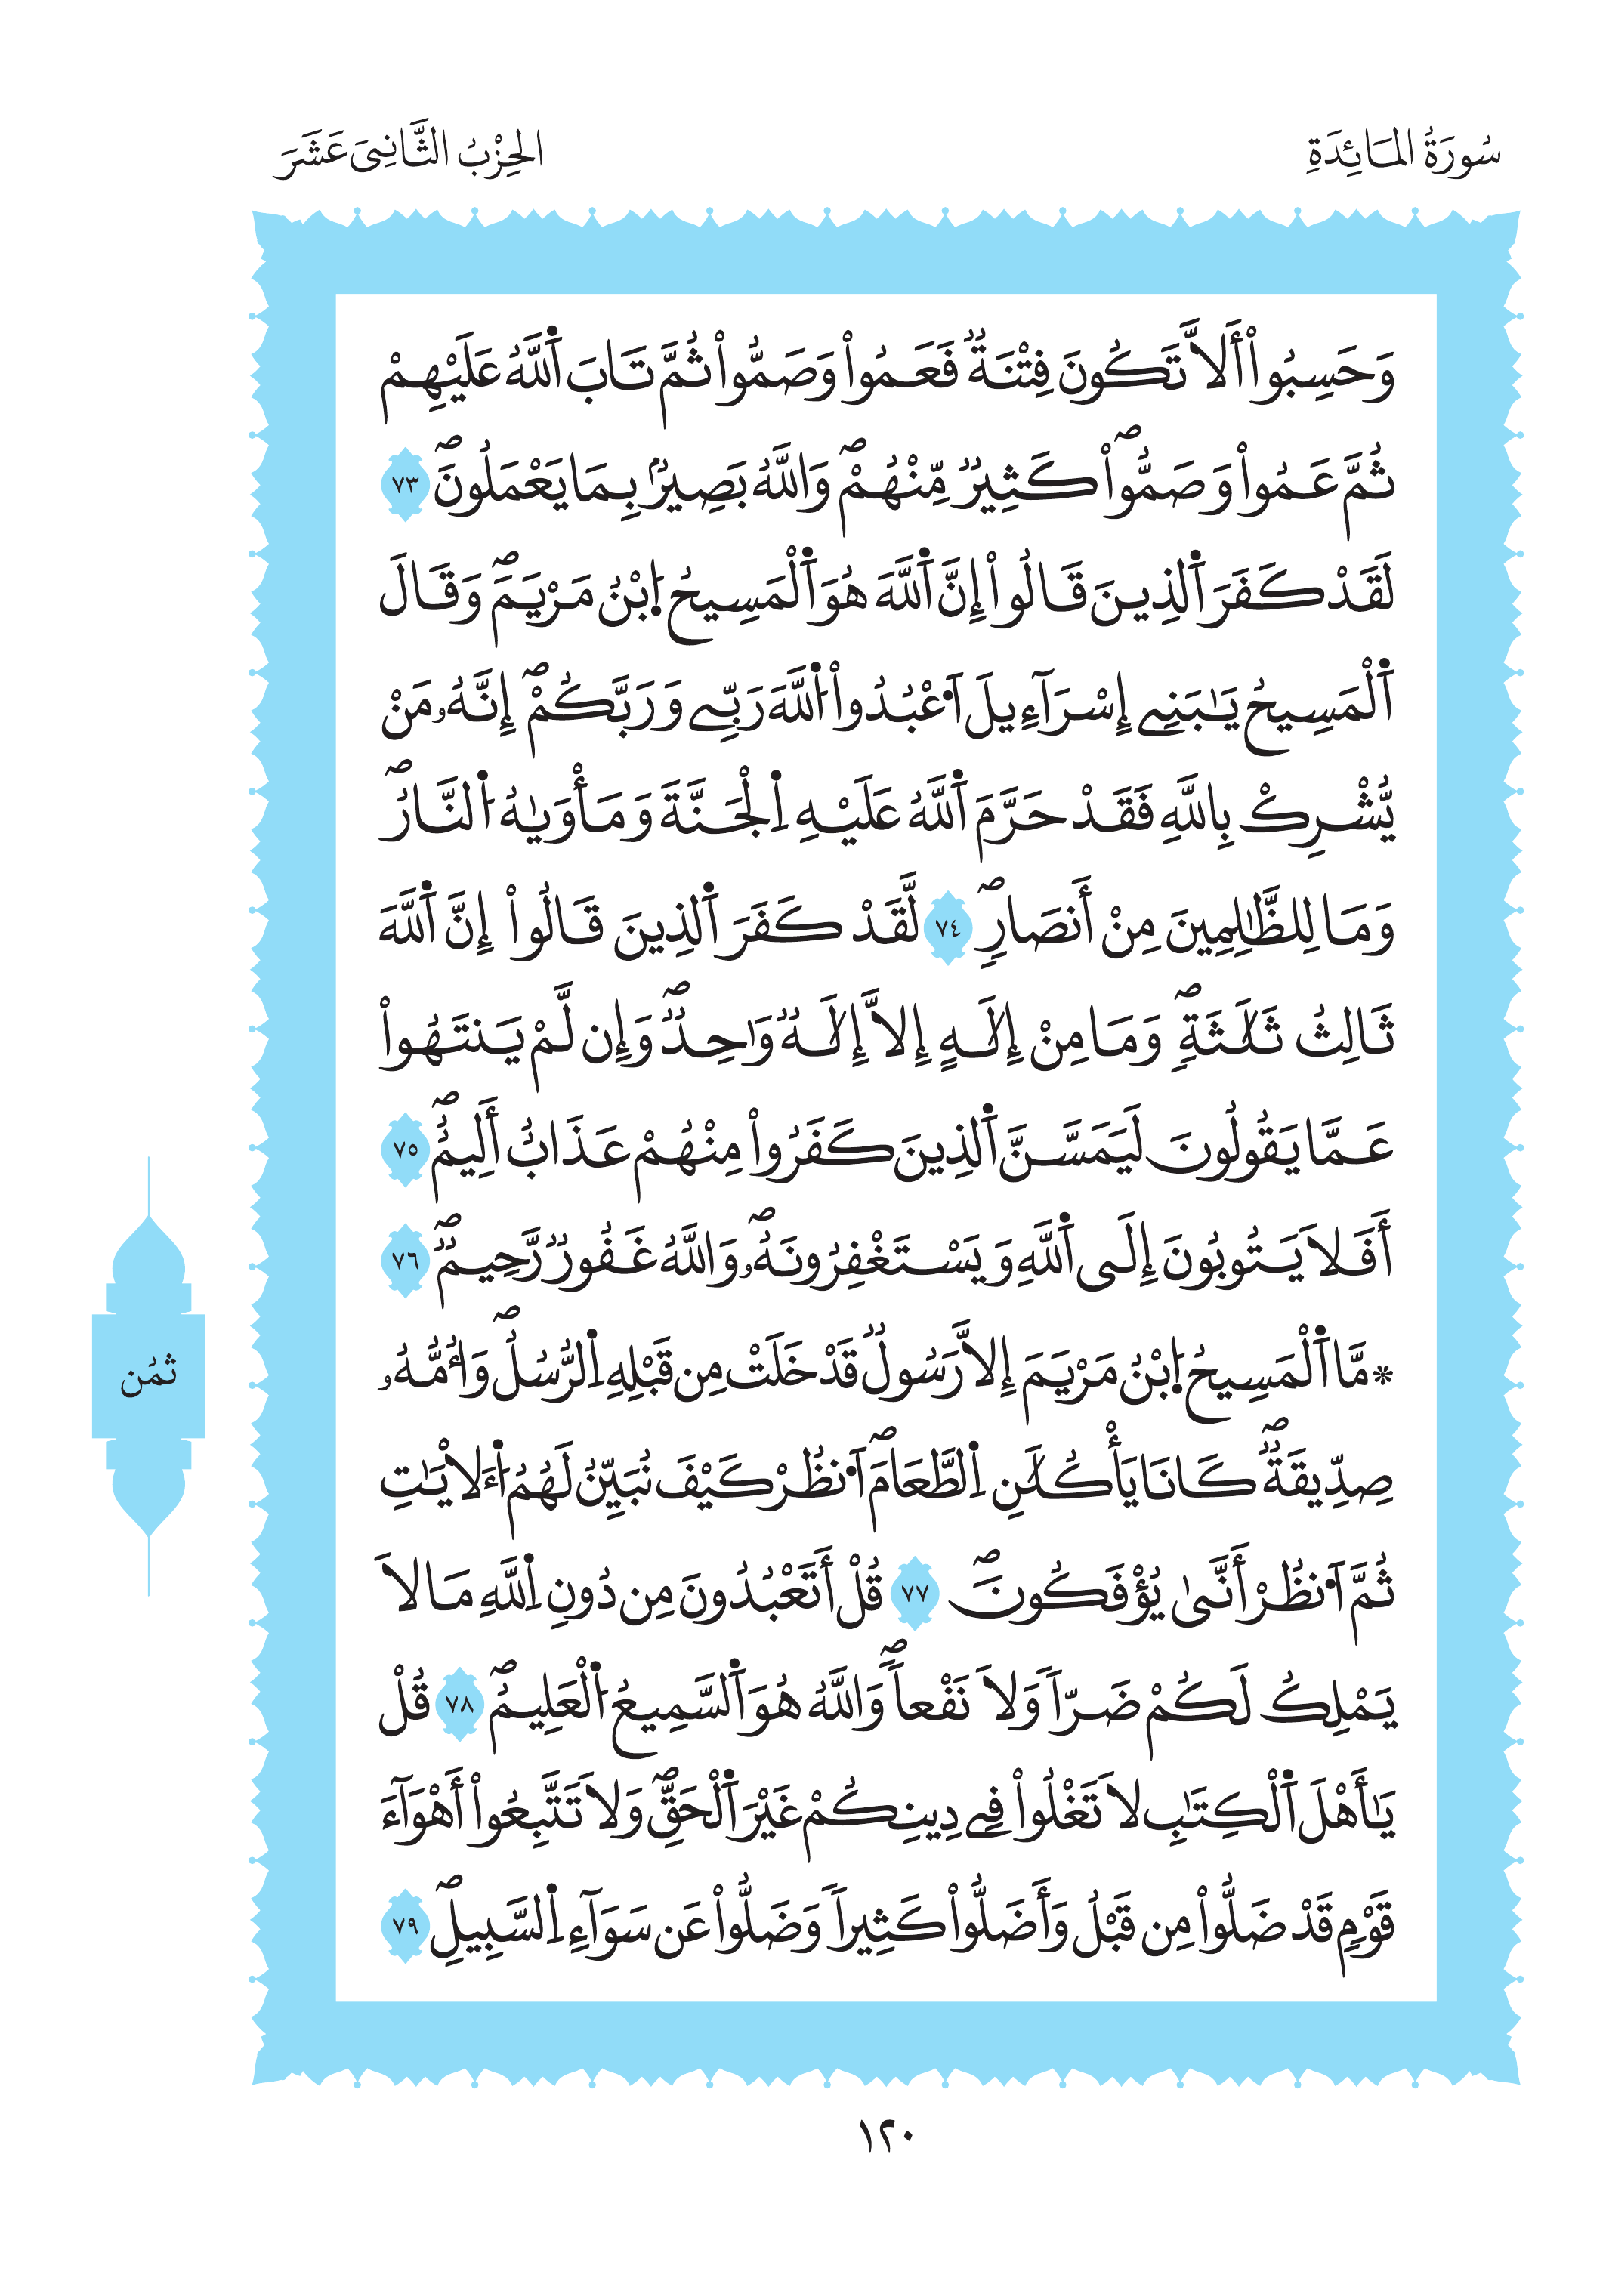 سُورَةُ المَائِدَةِ
الحِزْبُ الثَّانِيَ عَشَرَ
وَحَسِبُواْ أَلاَّ تَكُونَ فِتْنَةٌ فَعَمُواْ وَصَمُّواْ ثُمَّ تَابَ اَ۬للَّهُ عَلَيْهِمْ
ثُمَّ عَمُواْ وَصَمُّواْۖ كَثِيرٌ مِّنْهُمْۖ وَاللَّهُ بَصِيرُۢ بِمَا يَعْمَلُونَۖ ٧٣
لَقَدْ كَفَرَ اَ۬لذِينَ قَالُواْ إِنَّ اَ۬للَّهَ هُوَ اَ۬لْمَسِيحُ اُ۪بْنُ مَرْيَمَۖ وَقَالَ
اَ۬لْمَسِيحُ يَٰبَنِےٓ إِسْرَآءِيلَ اَ۟عْبُدُواْ اُ۬للَّهَ رَبِّے وَرَبَّكُمْۖ إِنَّهُۥ مَنْ
يُّشْرِكْ بِاللَّهِ فَقَدْ حَرَّمَ اَ۬للَّهُ عَلَيْهِ اِ۬لْجَنَّةَ وَمَأْوَيٰهُ اُ۬لنَّارُۖ
وَمَا لِلظَّٰلِمِينَ مِنْ أَنصَارٖۖ ٧٤ لَّقَدْ كَفَرَ اَ۬لذِينَ قَالُواْ إِنَّ اَ۬للَّهَ
ثَالِثُ ثَلَٰثَةٖۖ وَمَا مِنْ إِلَٰهٍ إِلاَّ إِلَٰهٌ وَٰحِدٌۖ وَإِن لَّمْ يَنتَهُواْ
عَمَّا يَقُولُونَ لَيَمَسَّنَّ اَ۬لذِينَ كَفَرُواْ مِنْهُمْ عَذَابٌ أَلِيمٌۖ ٧٥
أَفَلاَ يَتُوبُونَ إِلَى اَ۬للَّهِ وَيَسْتَغْفِرُونَهُۥۖ وَاللَّهُ غَفُورٌ رَّحِيمٌۖ ٧٦
* مَّا اَ۬لْمَسِيحُ اُ۪بْنُ مَرْيَمَ إِلاَّ رَسُولٌ قَدْ خَلَتْ مِن قَبْلِهِ اِ۬لرُّسُلُۖ وَأُمُّهُۥ
صِدِّيقَةٌۖ كَانَا يَأْكُلَٰنِ اِ۬لطَّعَامَۖ اَ۟نظُرْ كَيْفَ نُبَيِّنُ لَهُمُ اُ۬لْأٓيَٰتِ
ثُمَّ اَ۟نظُرْ أَنَّيٰ يُؤْفَكُونَۖ ٧٧ قُلْ أَتَعْبُدُونَ مِن دُونِ اِ۬للَّهِ مَا لاَ
يَمْلِكُ لَكُمْ ضَرّاٗ وَلاَ نَفْعاٗۖ وَاللَّهُ هُوَ اَ۬لسَّمِيعُ اُ۬لْعَلِيمُۖ ٧٨ قُلْ
يَٰأَهْلَ اَ۬لْكِتَٰبِ لاَ تَغْلُواْ فِے دِينِكُمْ غَيْرَ اَ۬لْحَقِّۖ وَلاَ تَتَّبِعُواْ أَهْوَآءَ
قَوْمٖ قَدْ ضَلُّواْ مِن قَبْلُ وَأَضَلُّواْ كَثِيراٗ وَضَلُّواْ عَن سَوَآءِ اِ۬لسَّبِيلِۖ ٧٩
ثمُن
١٢٠